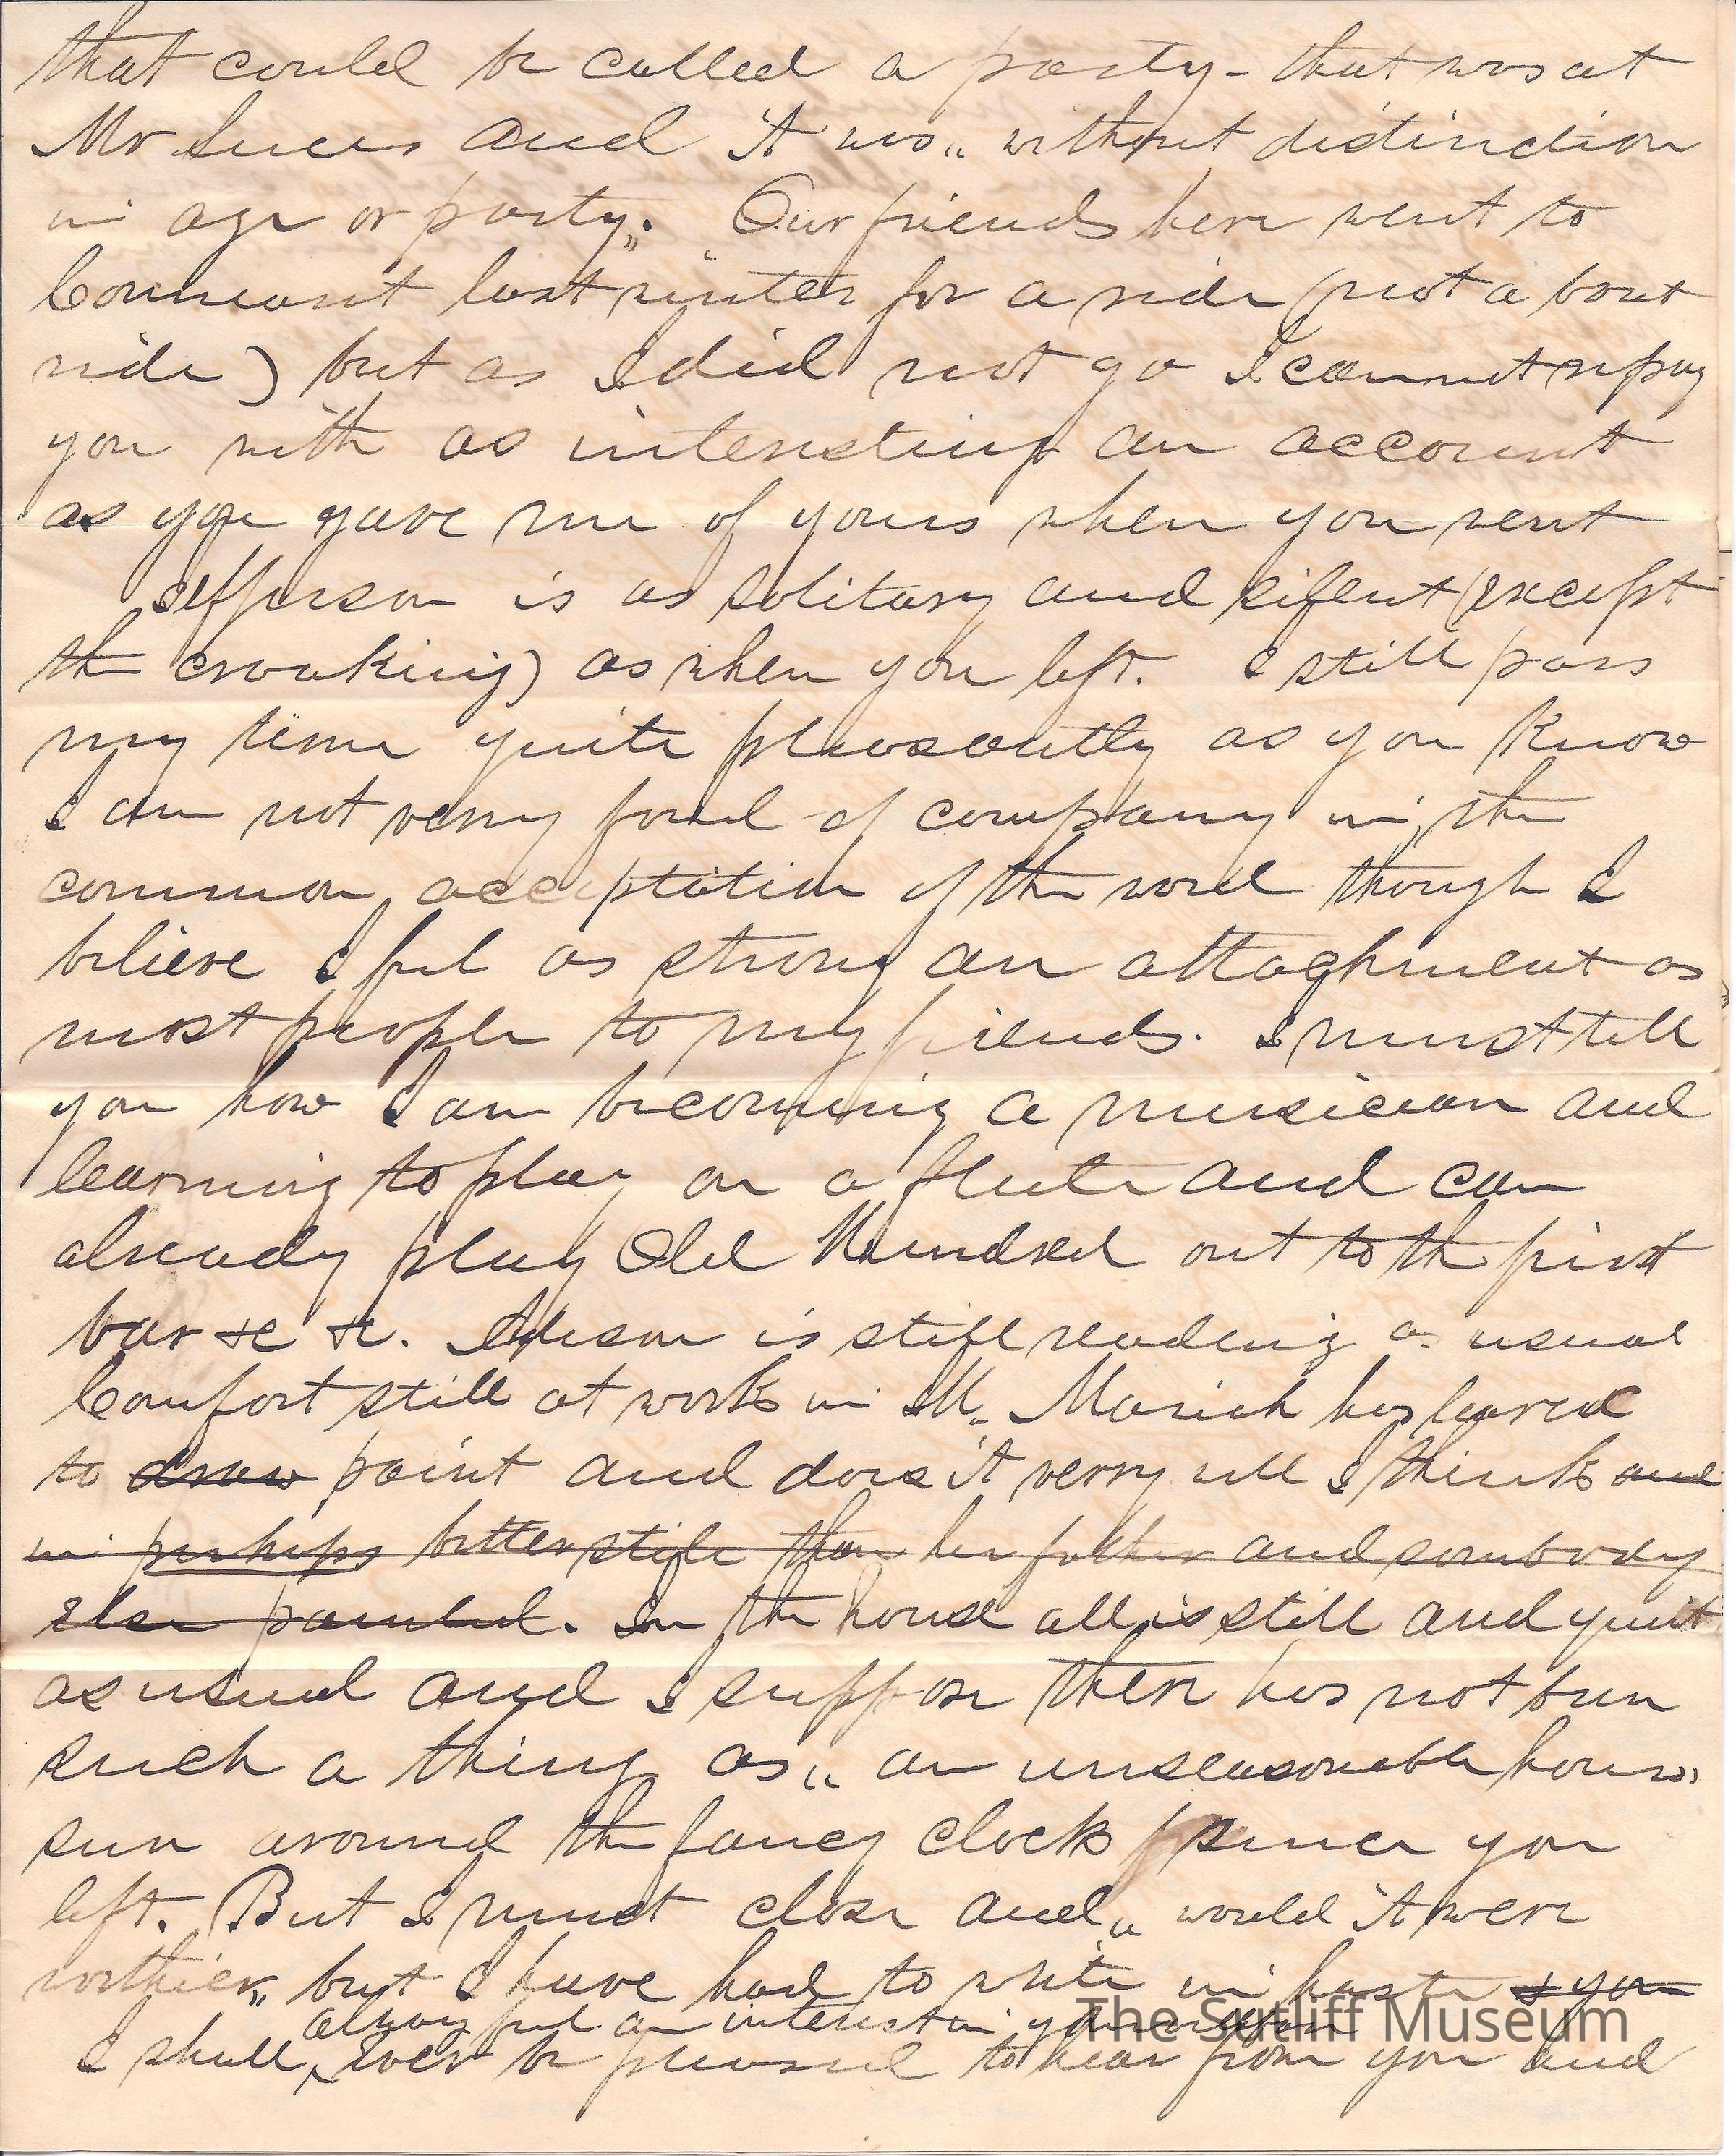 that could be called a party - that was at
Mr Luces and it was „ without distinction
in age or party„. Our friends here went to
Conneaut last winter for a ride (not a boat
ride) but as I did not go I cannot repay
you with as interesting an account
as you gave me of yours when you went
Jefferson is as solitary and silent (except
the croaking) as when you left. I still pass
my time quite pleasantly as you know
I am not verry fond of company in the
common acceptation of the word though I
believe I feel as strong an attachment as
most people to my friends. I must tell
you how I am becoming a musician and
learning to play on a flute and can
already play Old Hundred out to the first
bar &c &c. is still reading as usual
Comfort still at work in M„ Mariah has learned
to draw paint and does it verry well I think and
in perhaps better stile than her father and sombody
else painted. In the house all is still and quiet
as usual and I suppose there has not been
such a thing as „ an unseasonable hour„
sun around the fancy clock since you
left. But I must close and „ would it were
worthier„ but I have had to write in haste & you
always feel an interest in your
I shall ever be pleased to hear from you and
The Sutliff Museum